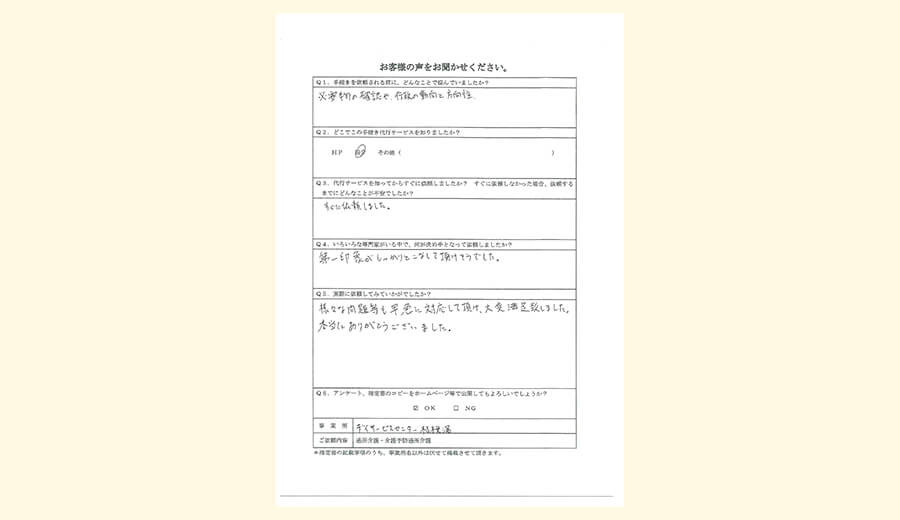 お客様の声をお聞かせください。
Q1. 手続きを依頼される前に、どんなことで悩んでいましたか?
必要物の確認や、行政の動向と方向性.
Q2. どこでこの手続き代行サービスを知りましたか?
HP 紹介 その他 ( )
Q3. 代行サービスを知ってからすぐに依頼しましたか? すぐに依頼しなかった場合、依頼する
までにどんなことが不安でしたか?
すぐに依頼しました。
Q4. いろいろな専門家がいる中で、何が決め手となって依頼しましたか?
第一印象がしっかりとこなして頂けそうでした。
Q5. 実際に依頼してみていかがでしたか?
様々な問題等も早急に対応して頂け、大変満足致しました。
本当にありがとうございました。
Q6. アンケート、指定書のコピーをホームページ等で公開してもよろしいでしょうか?
☑ OK □ NG
事業所 デイサービスセンター
ご依頼内容 通所介護・介護予防通所介護
*指定書の記載事項のうち、事業所名以外は伏せて掲載させて頂きます。